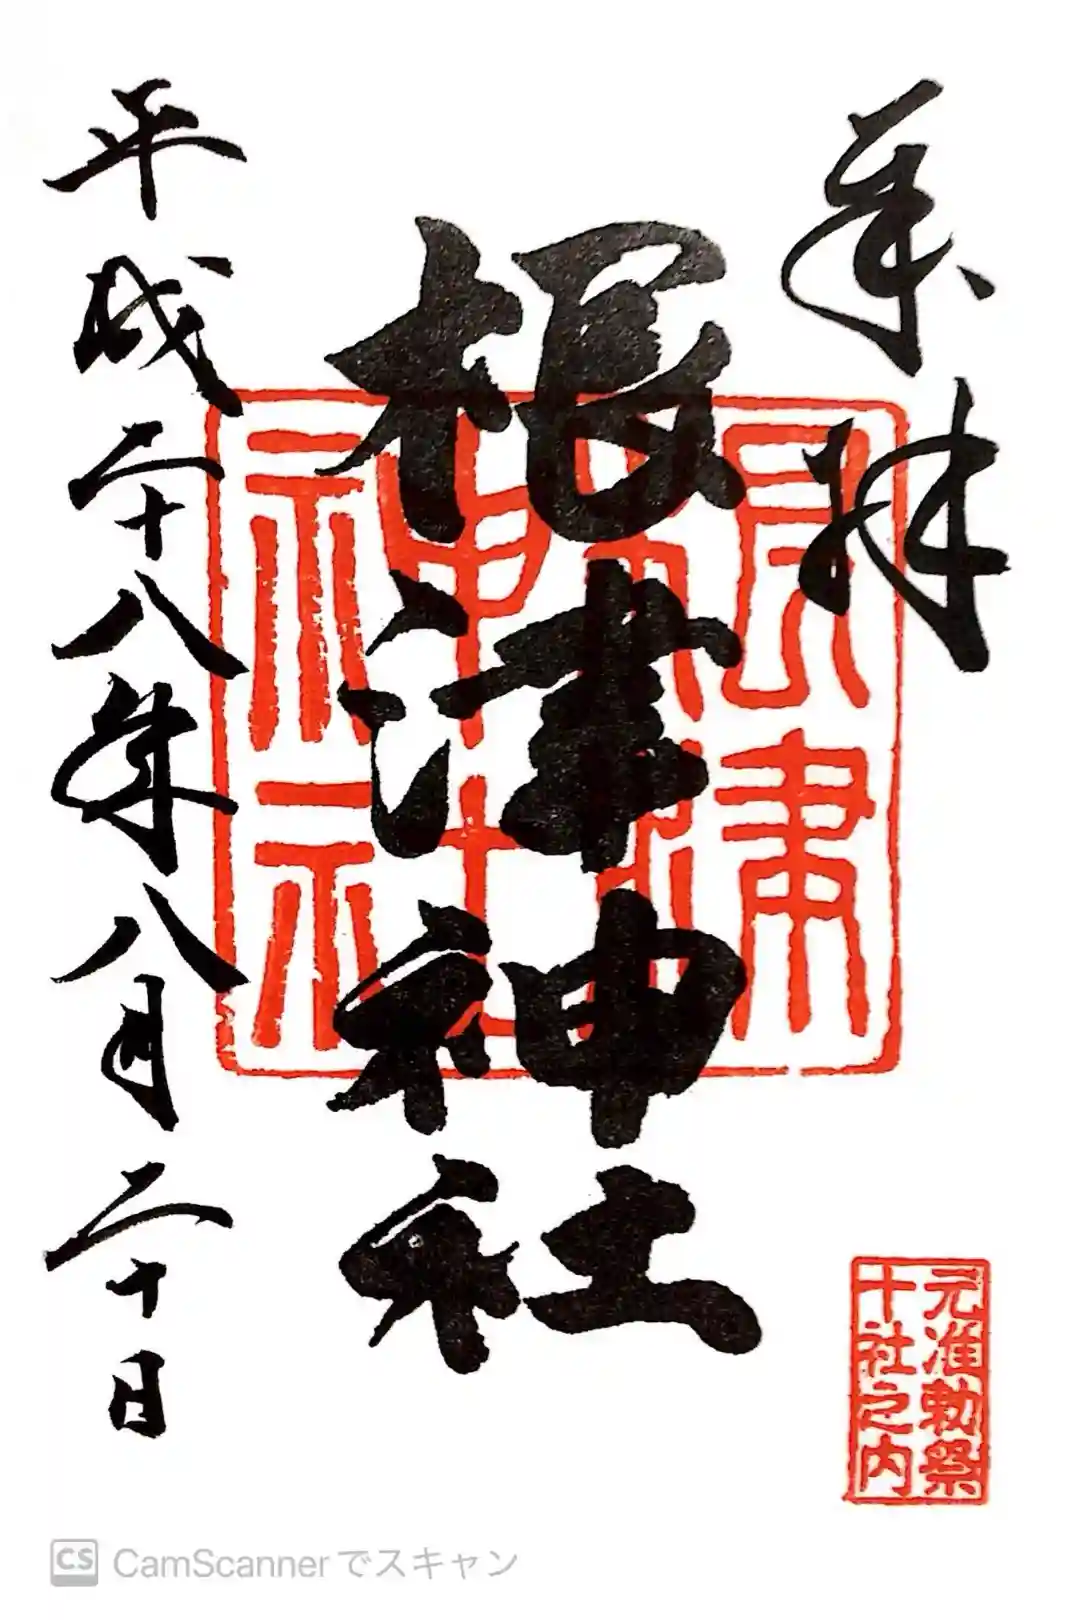 奉拝
根津神社
平成二十八年八月二十日
元准勅祭
十社之内
CS CamScannerでスキャン